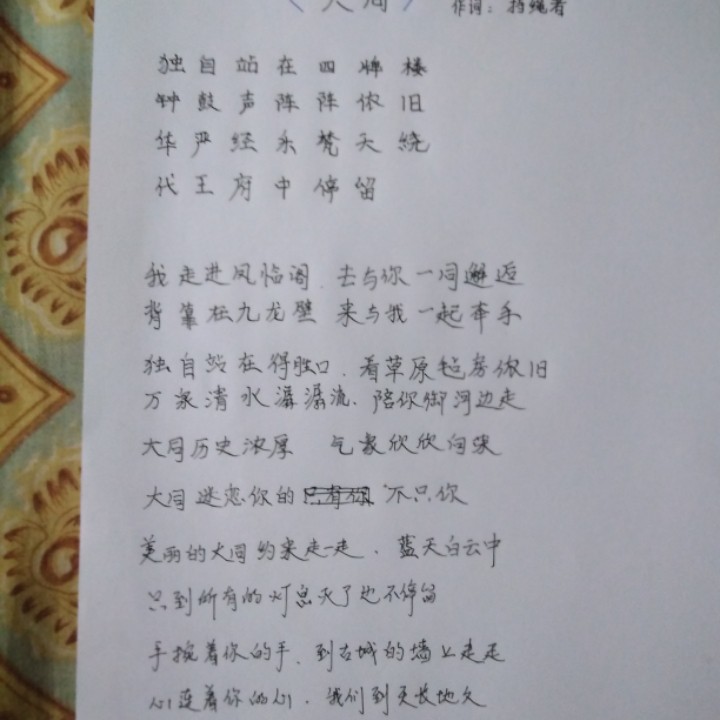 《大同》 作词：拾绳者
独自站在四牌楼
钟鼓声阵阵依旧
华严经乐梵天绕
代王府中停留
我走进凤临阁、去与你一同邂逅
背靠在九龙壁 来与我一起牵手
独自站在得胜口、看草原毡房依旧
万泉清水潺潺流、陪你御河边走
大同历史浓厚 气象欣欣向荣
大同迷恋你的 不只你
美丽的大同约来走一走、蓝天白云中
只到所有的灯息灭了也不停留
手挽着你的手、到古城的墙上走走
心连着你的心、我们到天长地久